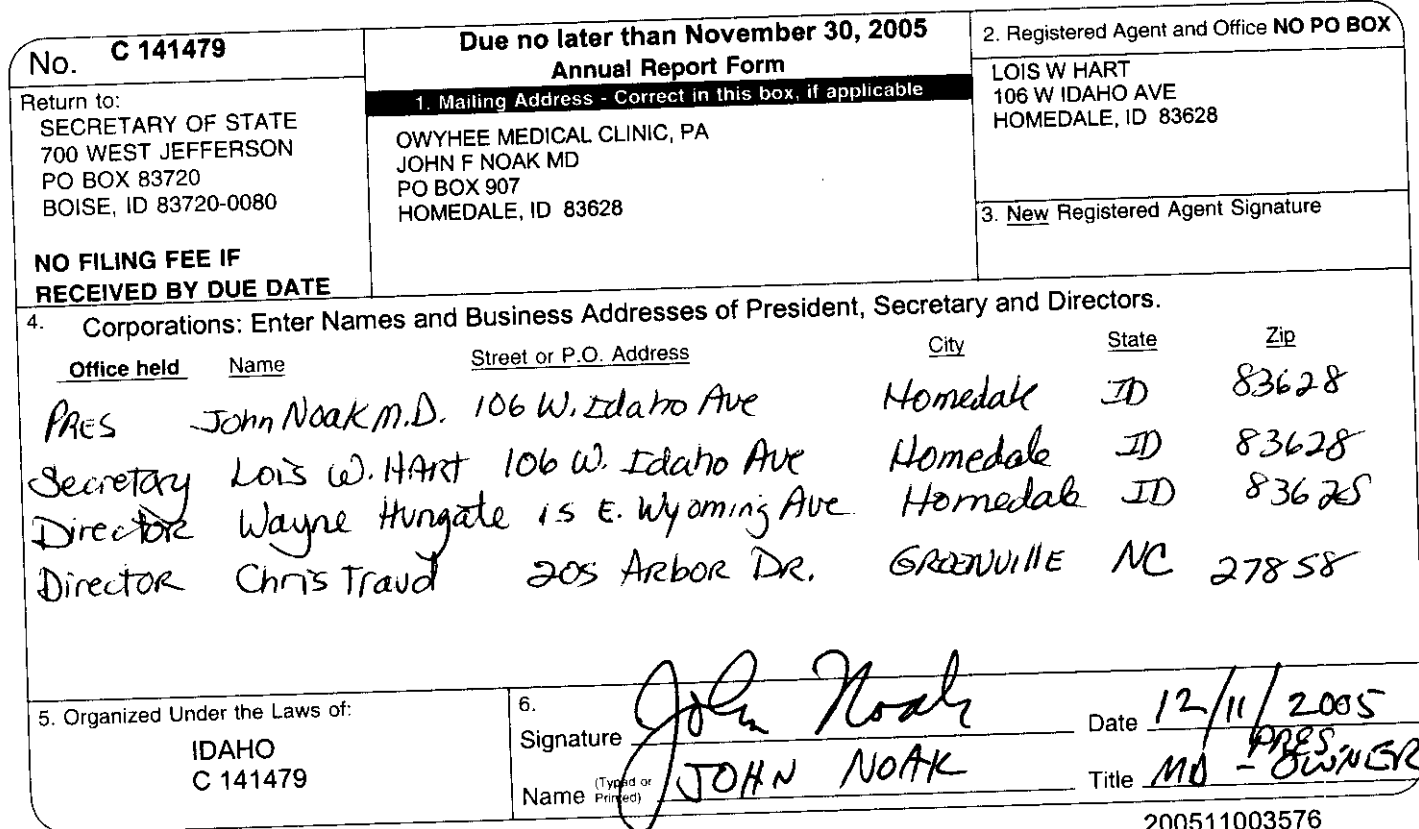 No. C 141479
Return to:
SECRETARY OF STATE
700 WEST JEFFERSON
PO BOX 83720
BOISE, ID 83720-0080
NO FILING FEE IF
RECEIVED BY DUE DATE
Due no later than November 30, 2005
Annual Report Form
1. Mailing Address - Correct in this box, if applicable
OWYHEE MEDICAL CLINIC, PA
JOHN F NOAK MD
PO BOX 907
HOMEDALE, ID 83628
2. Registered Agent and Office NO PO BOX
LOIS W HART
106 W IDAHO AVE
HOMEDALE, ID 83628
3. New Registered Agent Signature
4. Corporations: Enter Names and Business Addresses of President, Secretary and Directors.
Office held Name Street or P.O. Address City State Zip
PRES John Noak M.D. 106 W. Idaho Ave Homedale ID 83628
Secretary Lois W. HART 106 W. Idaho Ave Homedale ID 83628
Director Wayne Hungate 15 E. Wyoming Ave Homedale ID 83628
Director Chris Traud 205 ARBOR DR. GREENVILLE NC 27858
5. Organized Under the Laws of:
IDAHO
C 141479
6.
Signature John Noak Date 12/11/2005
Name (Typed or Printed) JOHN NOAK Title MD - PRES. OWNER
200511003576